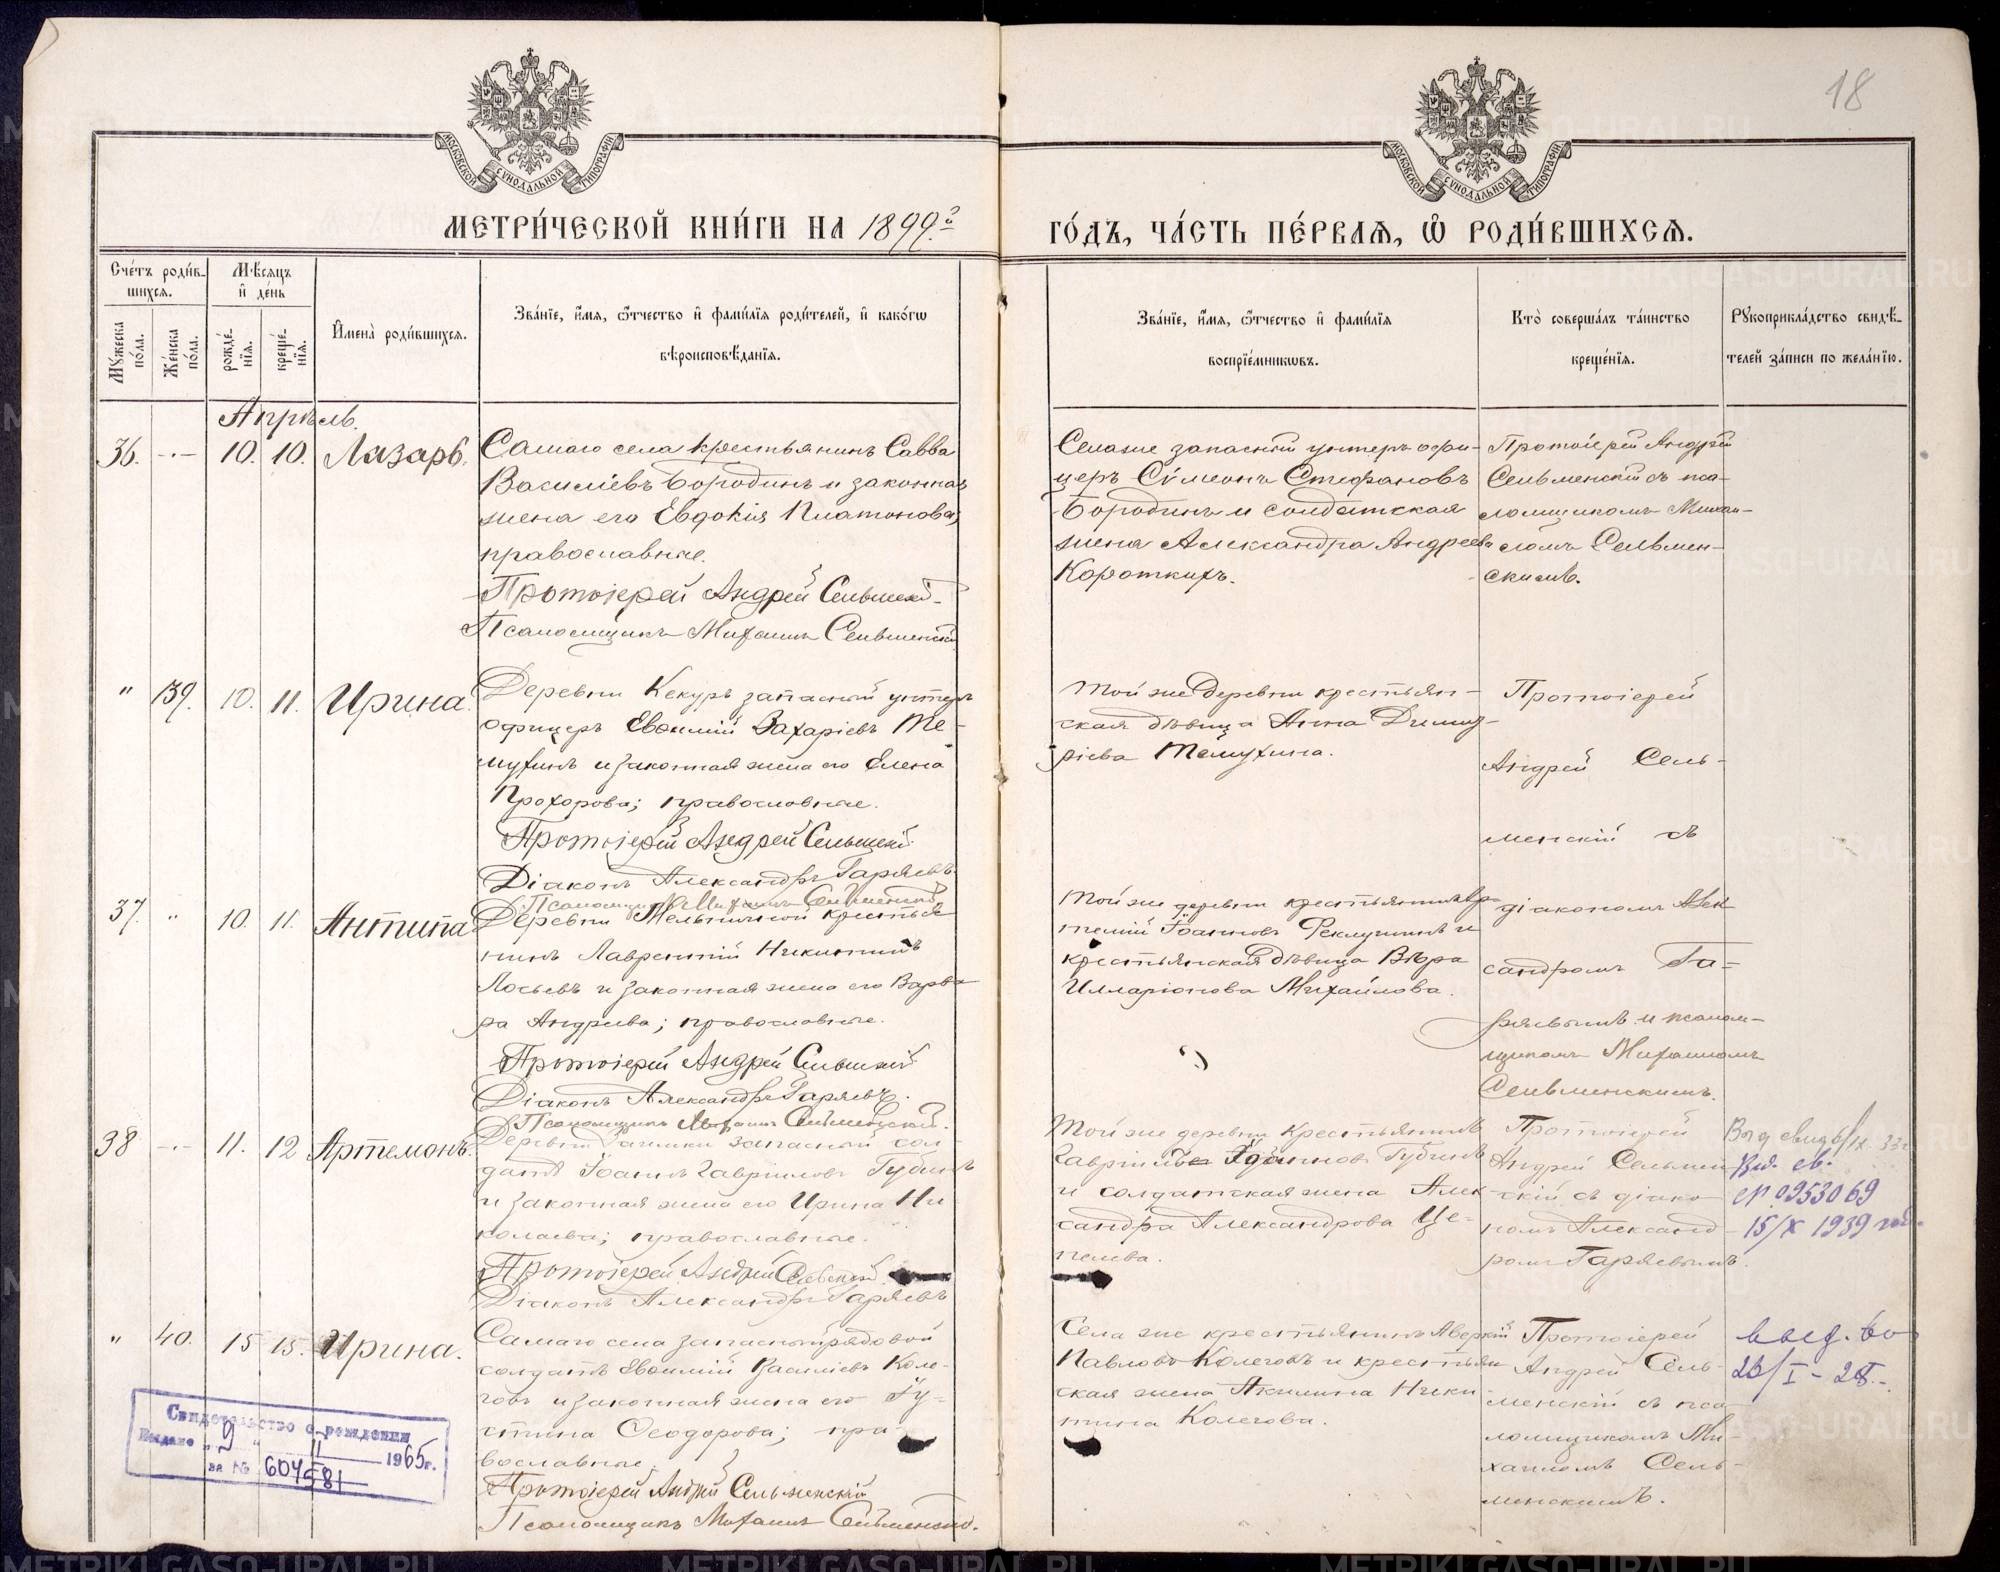 18
МОСКОВСКОЙ СУНОДАЛЬНОЙ ТИПОГРАФІИ
МОСКОВСКОЙ СУНОДАЛЬНОЙ ТИПОГРАФІИ
МЕТРИ́ЧЕСКОЙ КНИ́ГИ НА 1899.й
ГО́ДЪ, ЧА́СТЬ ПЕ́РВАѦ, Ѡ РОДИ́ВШИХСѦ.
Сче́тъ роди́в-
шихсѧ.
Мѣ́сѧцъ
и҆ де́нь
И҆мена̀ роди́вшихсѧ.
Зва́нїе, и҆́мѧ, ѻ҆́тчество и҆ фами́лїѧ роди́телей, и҆ како́гѡ
вѣроисповѣ́данїѧ.
Мꙋ́жеска
по́ла.
Же́нска
по́ла.
рожде́-
нїѧ.
креще́-
нїѧ.
Зва́нїе, и҆́мѧ, ѻ҆́тчество и҆ фами́лїѧ
воспрїе́мникѡвъ.
Кто̀ соверша́лъ та́инство
креще́нїѧ.
Рꙋкоприкла́дство свидѣ́-
телей за́писи по жела́нїю.
Апрѣль.
36. -·- 10. 10. Лазарь.
Самаго села крестьянинъ Савва
Василіевъ Бородинъ и законная
жена его Евдокія Платонова;
православные.
Протоіерей Андрей Сельменскій
Псаломщикъ Михаилъ Сельменскій
Села же запасный унтеръ офи-
церъ Сѵмеонъ Стефановъ
Бородинъ и солдатская
жена Александра Андреева
Короткихъ.
Протоіерей Андрей
Сельменскій съ пса-
ломщикомъ Миха-
иломъ Сельмен-
скимъ.
" 139. 10. 11. Ирина.
Деревни Кекуръ запасный унтеръ
офицеръ Евѳимій Захаріевъ Те-
мухинъ и законная жена его Елена
Прохорова; православные.
Протоіерей Андрей Сельменскій
Діаконъ Александръ Гаряевъ
Псаломщикъ Михаилъ Сельменскій
Той же деревни крестьян-
ская дѣвица Анна Димит-
ріева Темухина.
Протоіерей
Андрей Сель-
менскій съ
діакономъ Алек
сандромъ Га-
ряевымъ и псалом-
щикомъ Михаиломъ
Сельменскимъ.
37. " 10. 11. Антипа
Деревни Мельничной крестья
нинъ Лаврентій Никитинъ
Лосьевъ и законная жена его Варва
ра Андреева; православные.
Протоіерей Андрей Сельменскій
Діаконъ Александръ Гаряевъ.
Псаломщикъ Михаилъ Сельменскій.
Той же деревни крестьянинъ Ар
темій Іоанновъ Феклушинъ и
крестьянская дѣвица Вѣра
Илларіонова Михайлова.
38 -·- 11. 12 Артемонъ.
запасный сол-
датъ Іоаннъ Гавріиловъ Губинъ
и законная жена его Ирина Ни
колаева; православные.
Протоіерей Андрей Сельменскій
Діаконъ Александръ Гаряевъ
Той же деревни крестьянинъ
Гавріилъ Іоанновъ Губинъ
и солдатская жена Алек
сандра Александрова Це-
пелева.
Протоіерей
Андрей Сельмен
скій съ діако
номъ Александ
ромъ Гаряевымъ.
Выд. свид.
Выд. св.
0953069
15/X 1939 год.
" 40. 15 15. Ирина.
Самаго села запасный рядовой
солдатъ Евѳимій Василіевъ Коле-
говъ и законная жена его Іу-
стина Ѳеодорова; пра-
вославные.
Протоіерей Андрей Сельменскій
Псаломщикъ Михаилъ Сельменскій.
Села же крестьянинъ Аверкій
Павловъ Колеговъ и крестьян
ская жена Акилина Ники
тина Колегова.
Протоіерей
Андрей Сель-
менскій съ пса-
ломщикомъ Ми-
хаиломъ Сель-
менскимъ.
26/I - 28.
Свидетельство о рождении
Выдано „ 9 “ II 1965 г.
за № 604581
METRIKI.GASO-URAL.RU